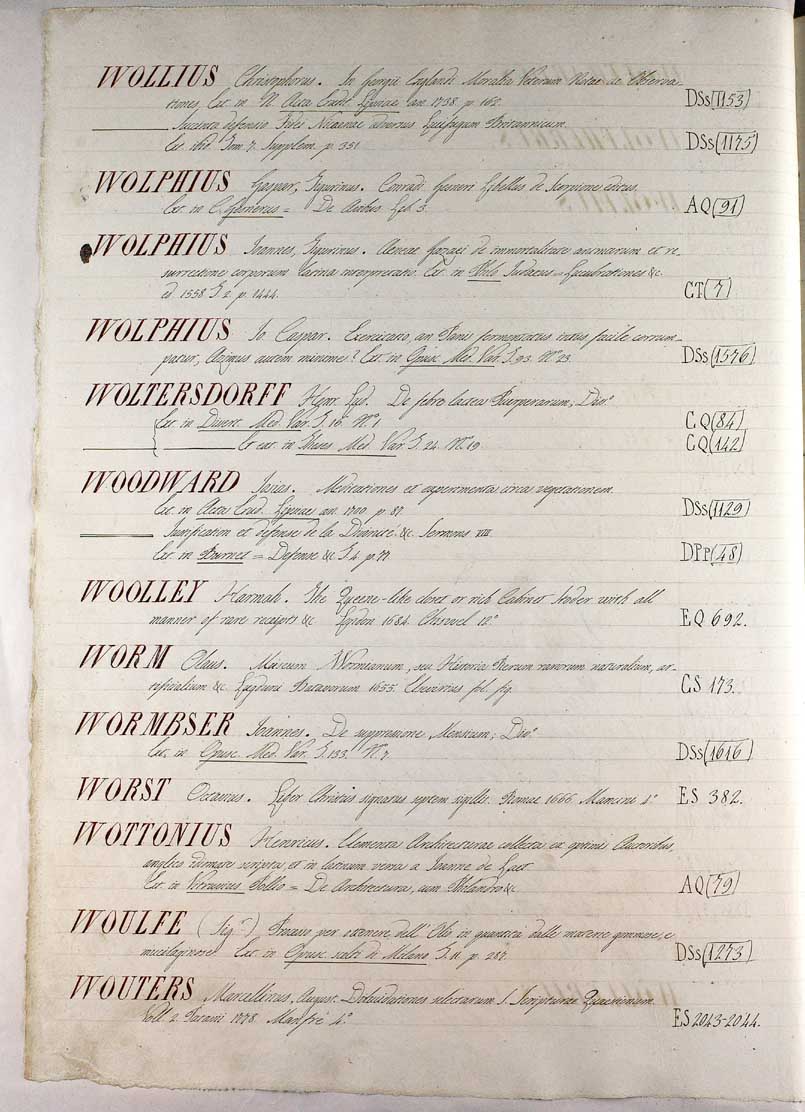 WOLLIUS Christophorus. In Georgii Englandi Moralia Veterum Notae ac Observa-
tiones, Ext. in N. Acta Erud. Lipsiae an. 1738 p. 162. DSs (1153)
Succincta defensio Fidei Nicaenae adversus Britannicum.
Ext. ibid. Tom 7. Supplem. p. 351 DSs (1175)
WOLPHIUS Gaspar, Tigurinus. Conradi Gesneri Libellus de Scorpione editus.
Ext. in C. Gesnerus = De Avibus Lib. 3. AQ (91)
WOLPHIUS Joannes, Tigurinus. Aeneae Gazaei de immortalitate animarum et re-
surrectione corporum latina interpretatio. Ext. in Philo Judaeus = Lucubrationes &c.
ed. 1558 T. 2. p. 1444. CT (7)
WOLPHIUS Jo. Caspar. Exercitatio, an Panis fermentatus intus facile corrum-
patur, Azimus autem minime? Ext. in Opusc. Med. Var. T. 93. N.° 23. DSs (1576)
WOLTERSDORFF Henr. Lud. De febre lactea Puerperarum; Diss.°
Ext. in Dissert. Med. Var. T. 16. N.° 1 CQ (84)
Et ext. in Theses Med. Var. T. 24. N.° 19 CQ (142)
WOODWARD Meditationes et experimenta circa vegetationem.
Ext. in Acta Erud. Lipsiae an. 1700 p. 87. DSs (1129)
Justification et defense de la Divinité &c. Sermons VIII.
Ext. in Burnet = Defense &c. T. 4. p. 77. DPp (48)
WOOLLEY Hannah. The Queene-like closet or rich Cabinet stored with all
manner of rare receipts &c. London 1684. Chiswel 12.° EQ 692.
WORM Olaus. Museum Wormianum, seu Historia Rerum rariorum naturalium, ar-
tificialium &c. Lugduni Batavorum 1655. Elzevirius fol. fig. CS 173.
WORMBSER Joannes. De suppressione Mensium; Diss.°
Ext. in Opusc. Med. Var. T. 133. N.° 7 DSs (1616)
WORST Octavus. Liber Christus signatus septem sigillis. Romae 1666. Mancini 4.° ES 382.
WOTTONIUS Henricus. Elementa Architecturae collecta ex optimis Auctoribus,
anglico idiomate scripta, et in latinum versa a Joanne de Laet.
Ext. in Vitruvius Pollio = De Architectura, cum Philandro &c. AQ (79)
WOULFE (Sig.r) Processo per ottenere dell' Olio in quantità dalle materie gommose, e
mucilaginose. Ext. in Opusc. scelti di Milano T. 11. p. 287. DSs (1273)
WOUTERS Marcellinus, August. Dilucidationes selectarum S. Scripturae Quaestionum.
Voll. 2. 1778. Manfrè 4.° ES 2043-2044.